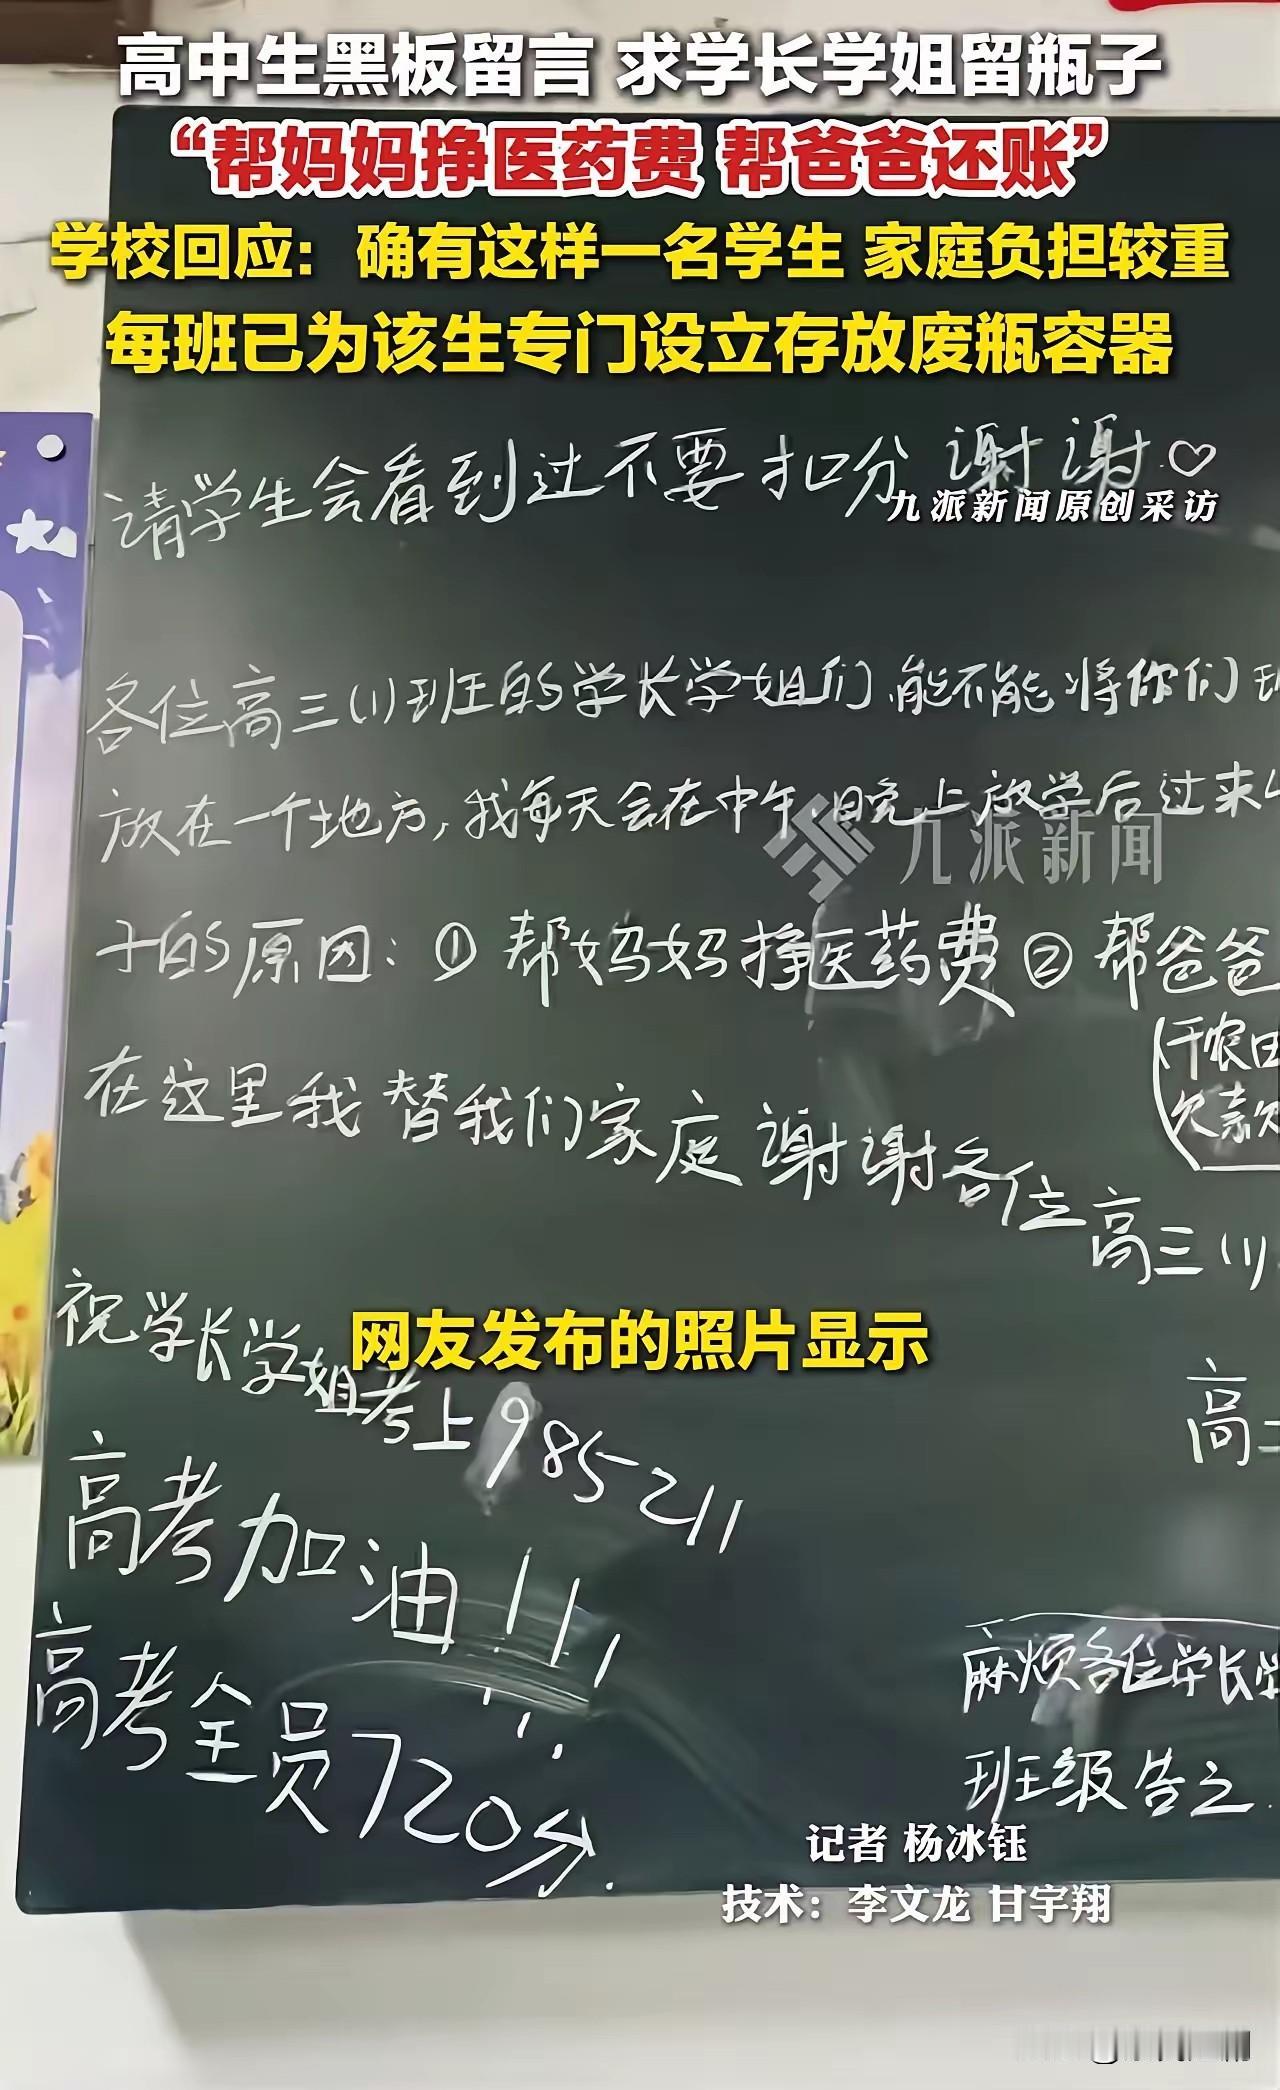 高中生黑板留言 求学长学姐留瓶子
“帮妈妈挣医药费 帮爸爸还账”
学校回应：确有这样一名学生 家庭负担较重
每班已为该生专门设立存放废瓶容器
请学生会看到过不要扣分 谢谢♡
九派新闻原创采访
各位高三(1)班的学长学姐们,能不能将你们
放在一个地方,我每天会在中午,晚上放学后过来
九派新闻
子的原因：①帮妈妈挣医药费②帮爸爸
(干农田
欠款
在这里我替我们家庭谢谢各位高三(1)
网友发布的照片显示
祝学长学姐考上985 211
高考加油!!!
高考全员720分.
高二
麻烦各位学长
班级告之.
记者 杨冰钰
技术：李文龙 甘宇翔